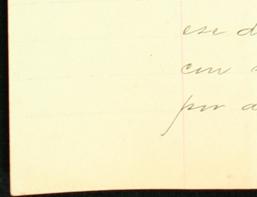 ese d
con
por a